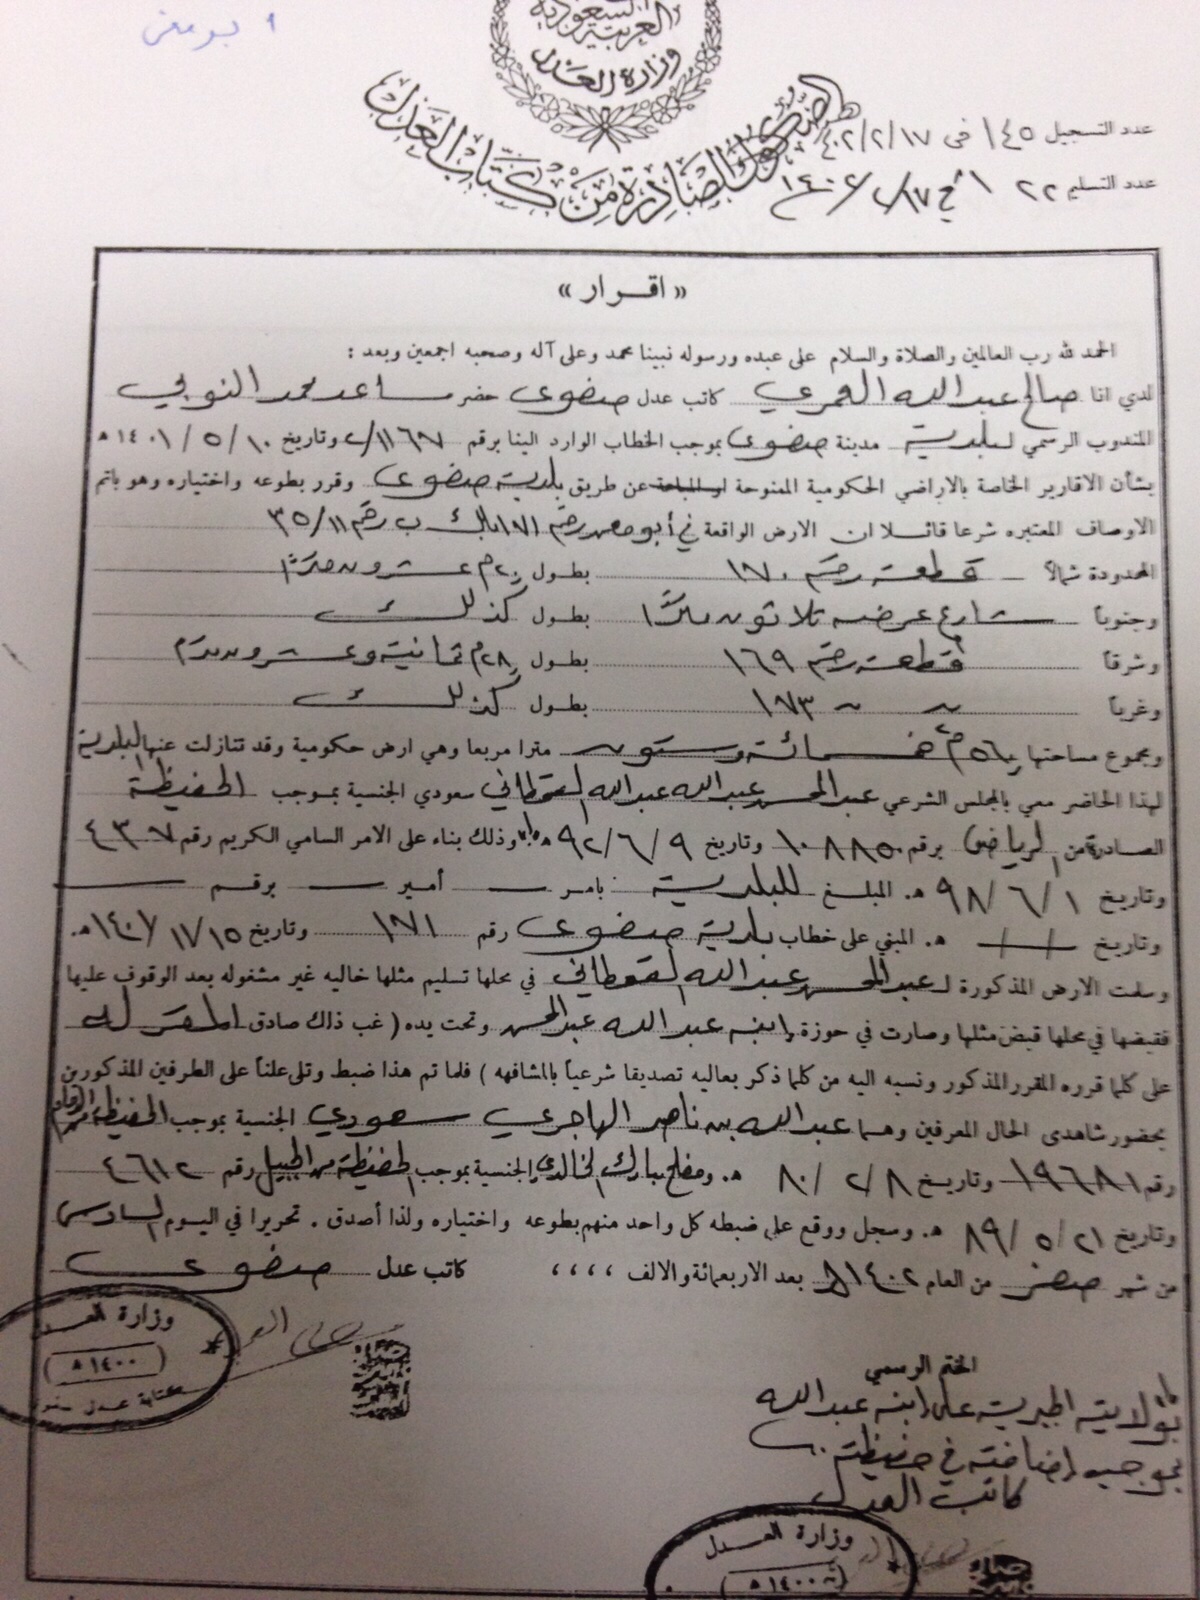 ابو معن
العربية السعودية
وزارة العدل
الصادرة من كتاب العدل
عدد التسجيل ١٤٥ في ١٤٠٢/٢/١٧
عدد التسليم ٢٢ ١٤٠٢/٢/١٧
« اقرار »
الحمد لله رب العالمين والصلاة والسلام على عبده ورسوله نبينا محمد وعلى آله وصحبه اجمعين وبعد :
لدي انا صالح عبدالله العمري كاتب عدل صفوى حضر ساعد محمد النوبي
المندوب الرسمي لـ بلدية مدينة صفوى بموجب الخطاب الوارد الينا برقم وتاريخ ١٠/ ٥/ ١٤٠١ هـ
بشأن الاقارير الخاصة بالاراضي الحكومية الممنوحة او المباعة عن طريق بلدية صفوى وقرر بطوعه واختياره وهو باتم
الاوصاف المعتبره شرعا قائلا ان الارض الواقعة في أبو معن رقم ١٧١ بلك ب رقم ٣٥/١١
المحدودة شمالا قطعة رقم ١٧٠ بطول ٢٠م عشرون مترا
وجنوبا شارع عرضه ثلاثون مترا بطول كذلك
وشرقا قطعة رقم ١٦٩ بطول ٢٨م ثمانية وعشرون متر
وغربا ~ ~ ١٧٣ بطول كذلك
ومجموع مساحتها ٥٦٠م خمسمائة وستون مترا مربعا وهي ارض حكومية وقد تنازلت عنها البلدية
لهذا الحاضر معي بالمجلس الشرعي عبدالمحسن عبدالله عبدالله القحطاني سعودي الجنسية بموجب الحفيظة
الصادرة من الرياض برقم ١٠٨٨٥ وتاريخ ٩/ ٦/ ٩٢ هـ وذلك بناء على الامر السامي الكريم رقم ٤٣٠٧
وتاريخ ١/ ٦/ ٩٨ هـ. المبلغ للبلدية بامر — أمير — برقم —
وتاريخ / / هـ. المبني على خطاب بلدية صفوى رقم ١٧١ وتاريخ ١٥/ ١/ ١٤٠٢ هـ.
وسلمت الارض المذكورة لـ عبدالمحسن عبدالله القحطاني في محلها تسليم مثلها خاليه غير مشغوله بعد الوقوف عليها
فقبضها في محلها قبض مثلها وصارت في حوزة ابنه عبدالله عبدالمحسن وتحت يده ( غب ذلك صادق المقر له
على كلما قرره المقرر المذكور ونسبه اليه من كلما ذكر بعاليه تصديقا شرعياً بالمشافهه ) فلما تم هذا ضبط وتلى علناً على الطرفين المذكورين
بحضور شاهدى الحال المعرفين وهما عبدالله بن ناصر الهاجري سعودي الجنسية بموجب الحفيظة من الدمام
رقم ١٩٦٨١ وتاريخ ٨/ ٢/ ٨٠ هـ. ومفلح مبارك الخالدي الجنسية بموجب حفيظة من الجبيل رقم ٤٦١٢
وتاريخ ٢١/ ٥/ ٨٩ هـ. وسجل ووقع على ضبطه كل واحد منهم بطوعه واختياره ولذا أصدق . تحريرا في اليوم السادس
من شهر صفر من العام ١٤٠٢هـ بعد الاربعمائة والالف ،،،، كاتب عدل صفوى
وزارة العدل
١٤٠٠ هـ
كتابة عدل صفوى
الختم الرسمي
بولايته الجبرية على ابنه عبدالله
بموجب اضافته في حفيظته
كاتب العدل
وزارة العدل
١٤٠٠ هـ